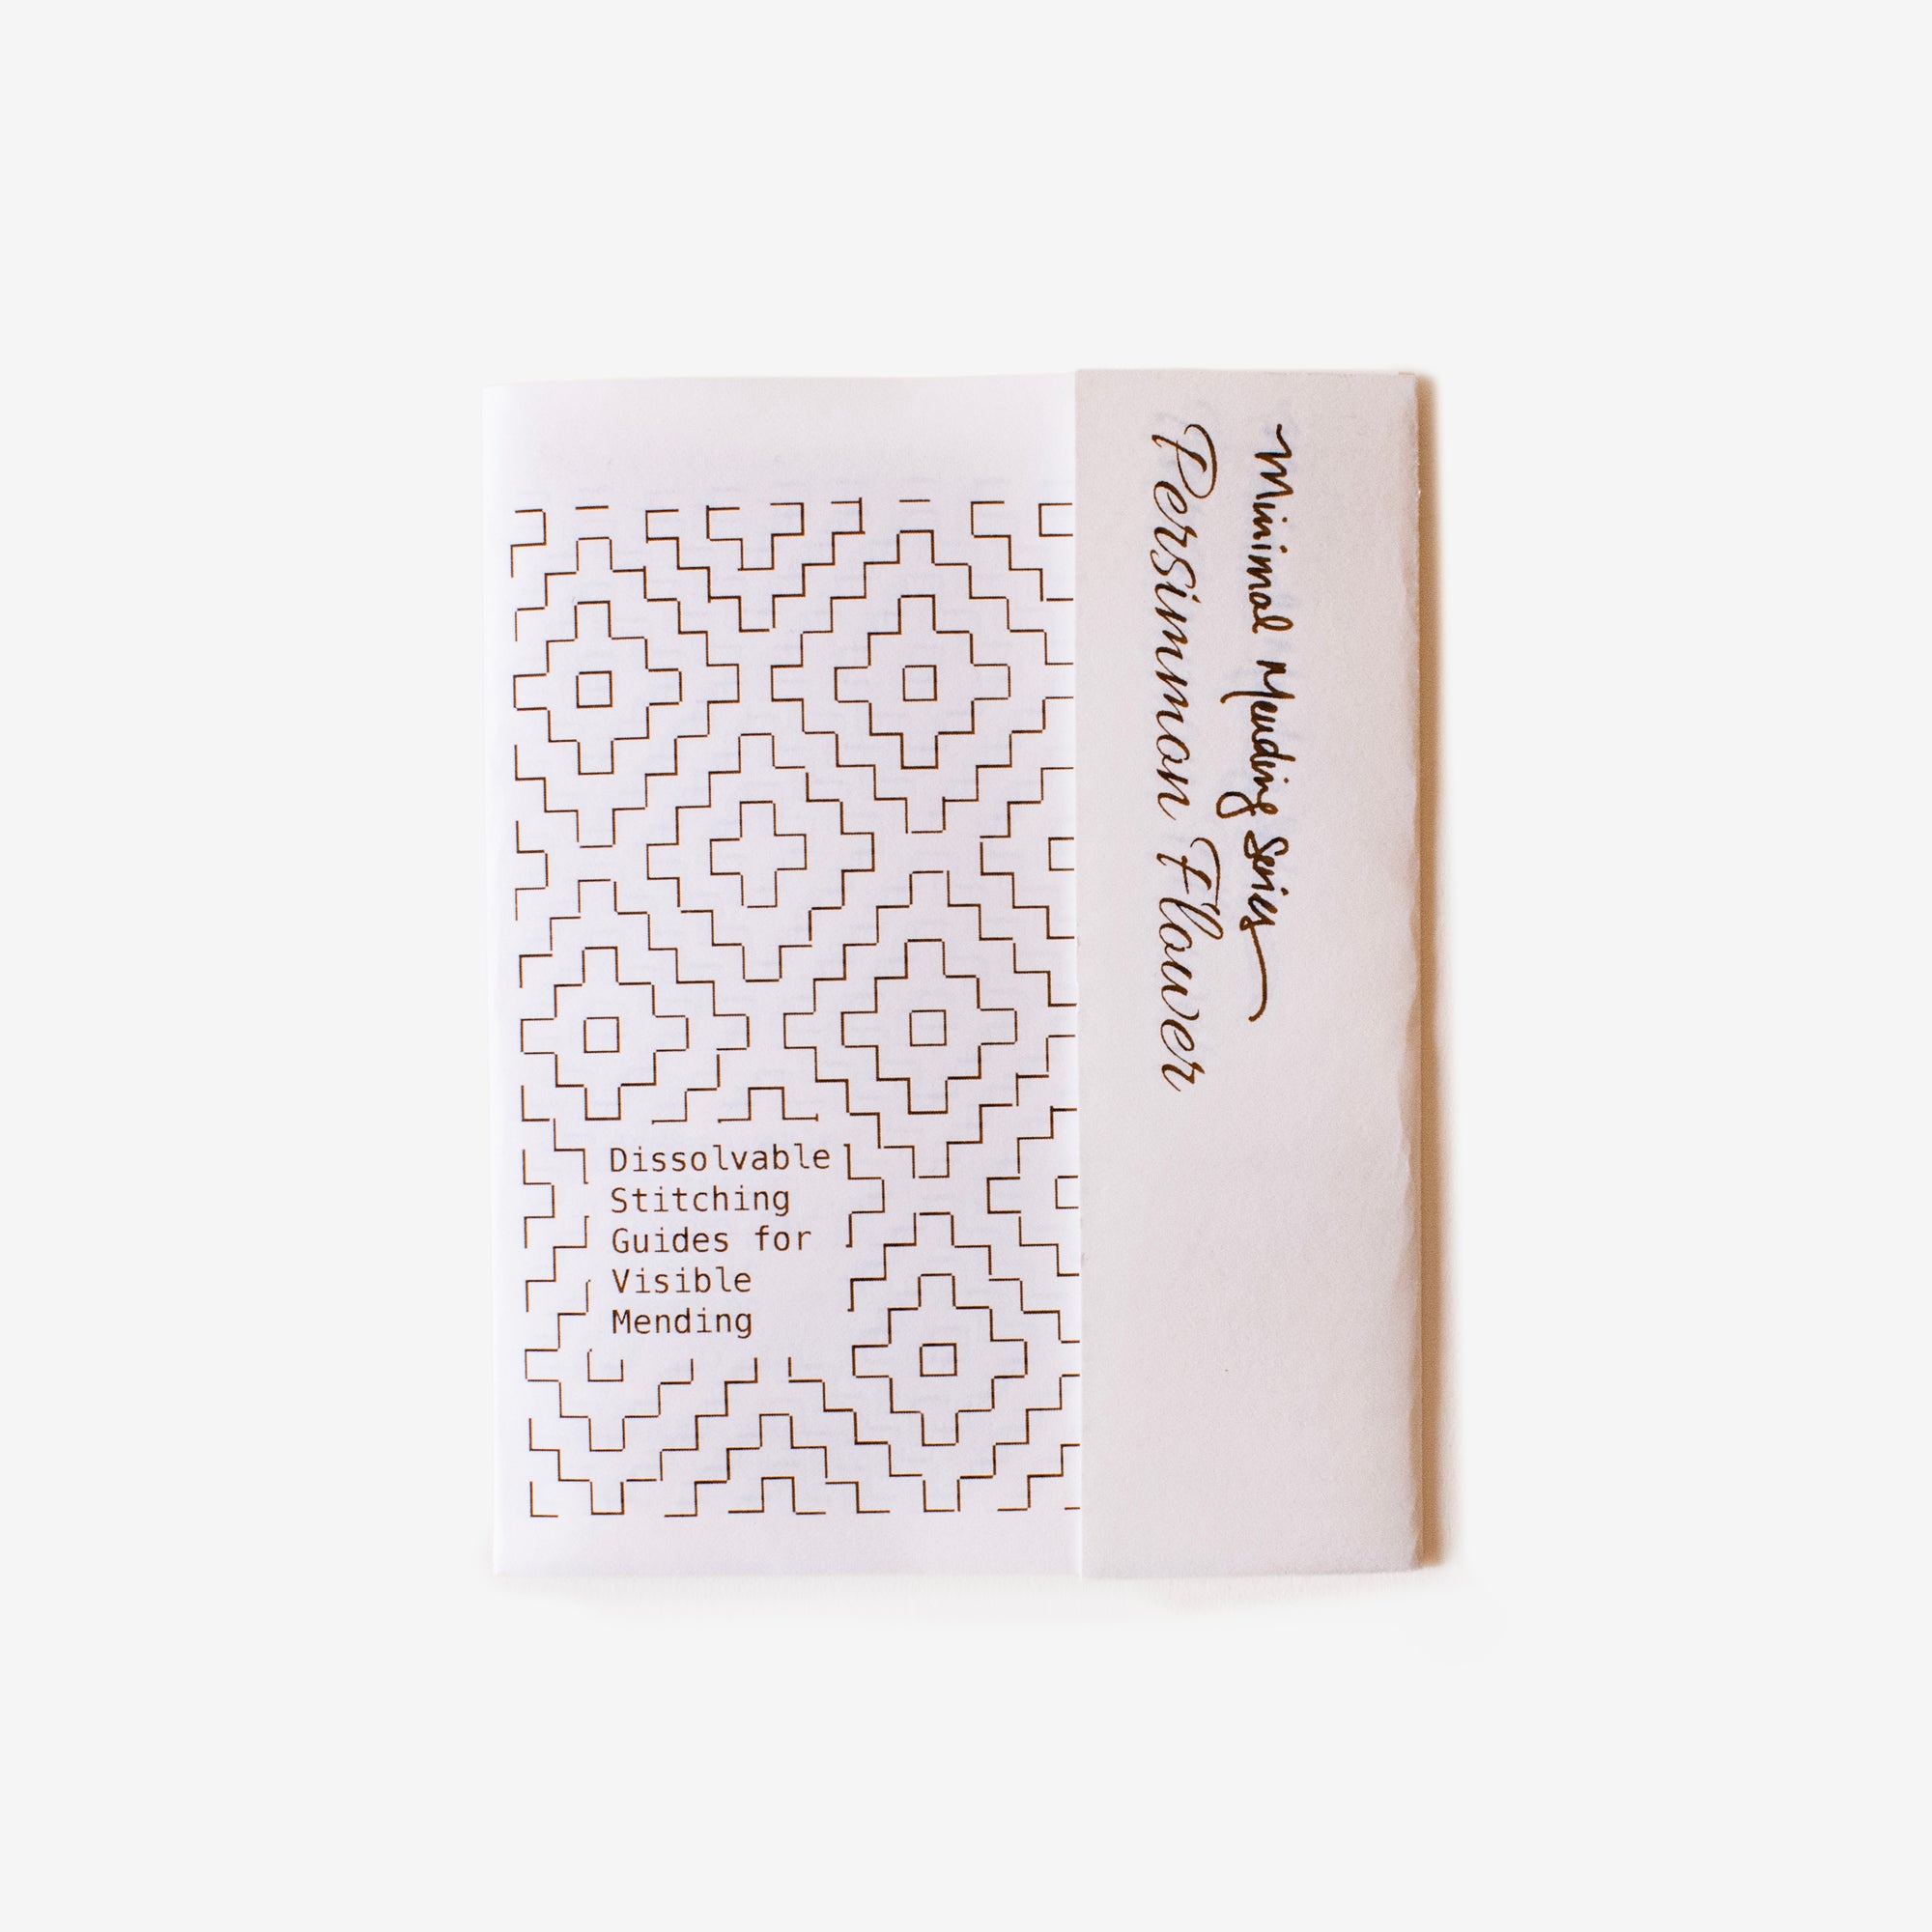 Minimal Mending Series
Persimmon Flower
Dissolvable
Stitching
Guides for
Visible
Mending